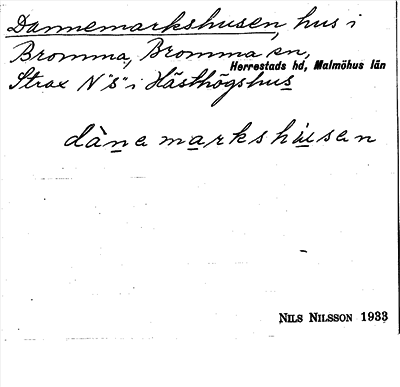 Dannemarkshusen, hus i
Bromma, Bromma sn,
Herrestads hd, Malmöhus län
Strax N "s" i Hästhögshus
dànemarkshùsen
NILS NILSSON 1933